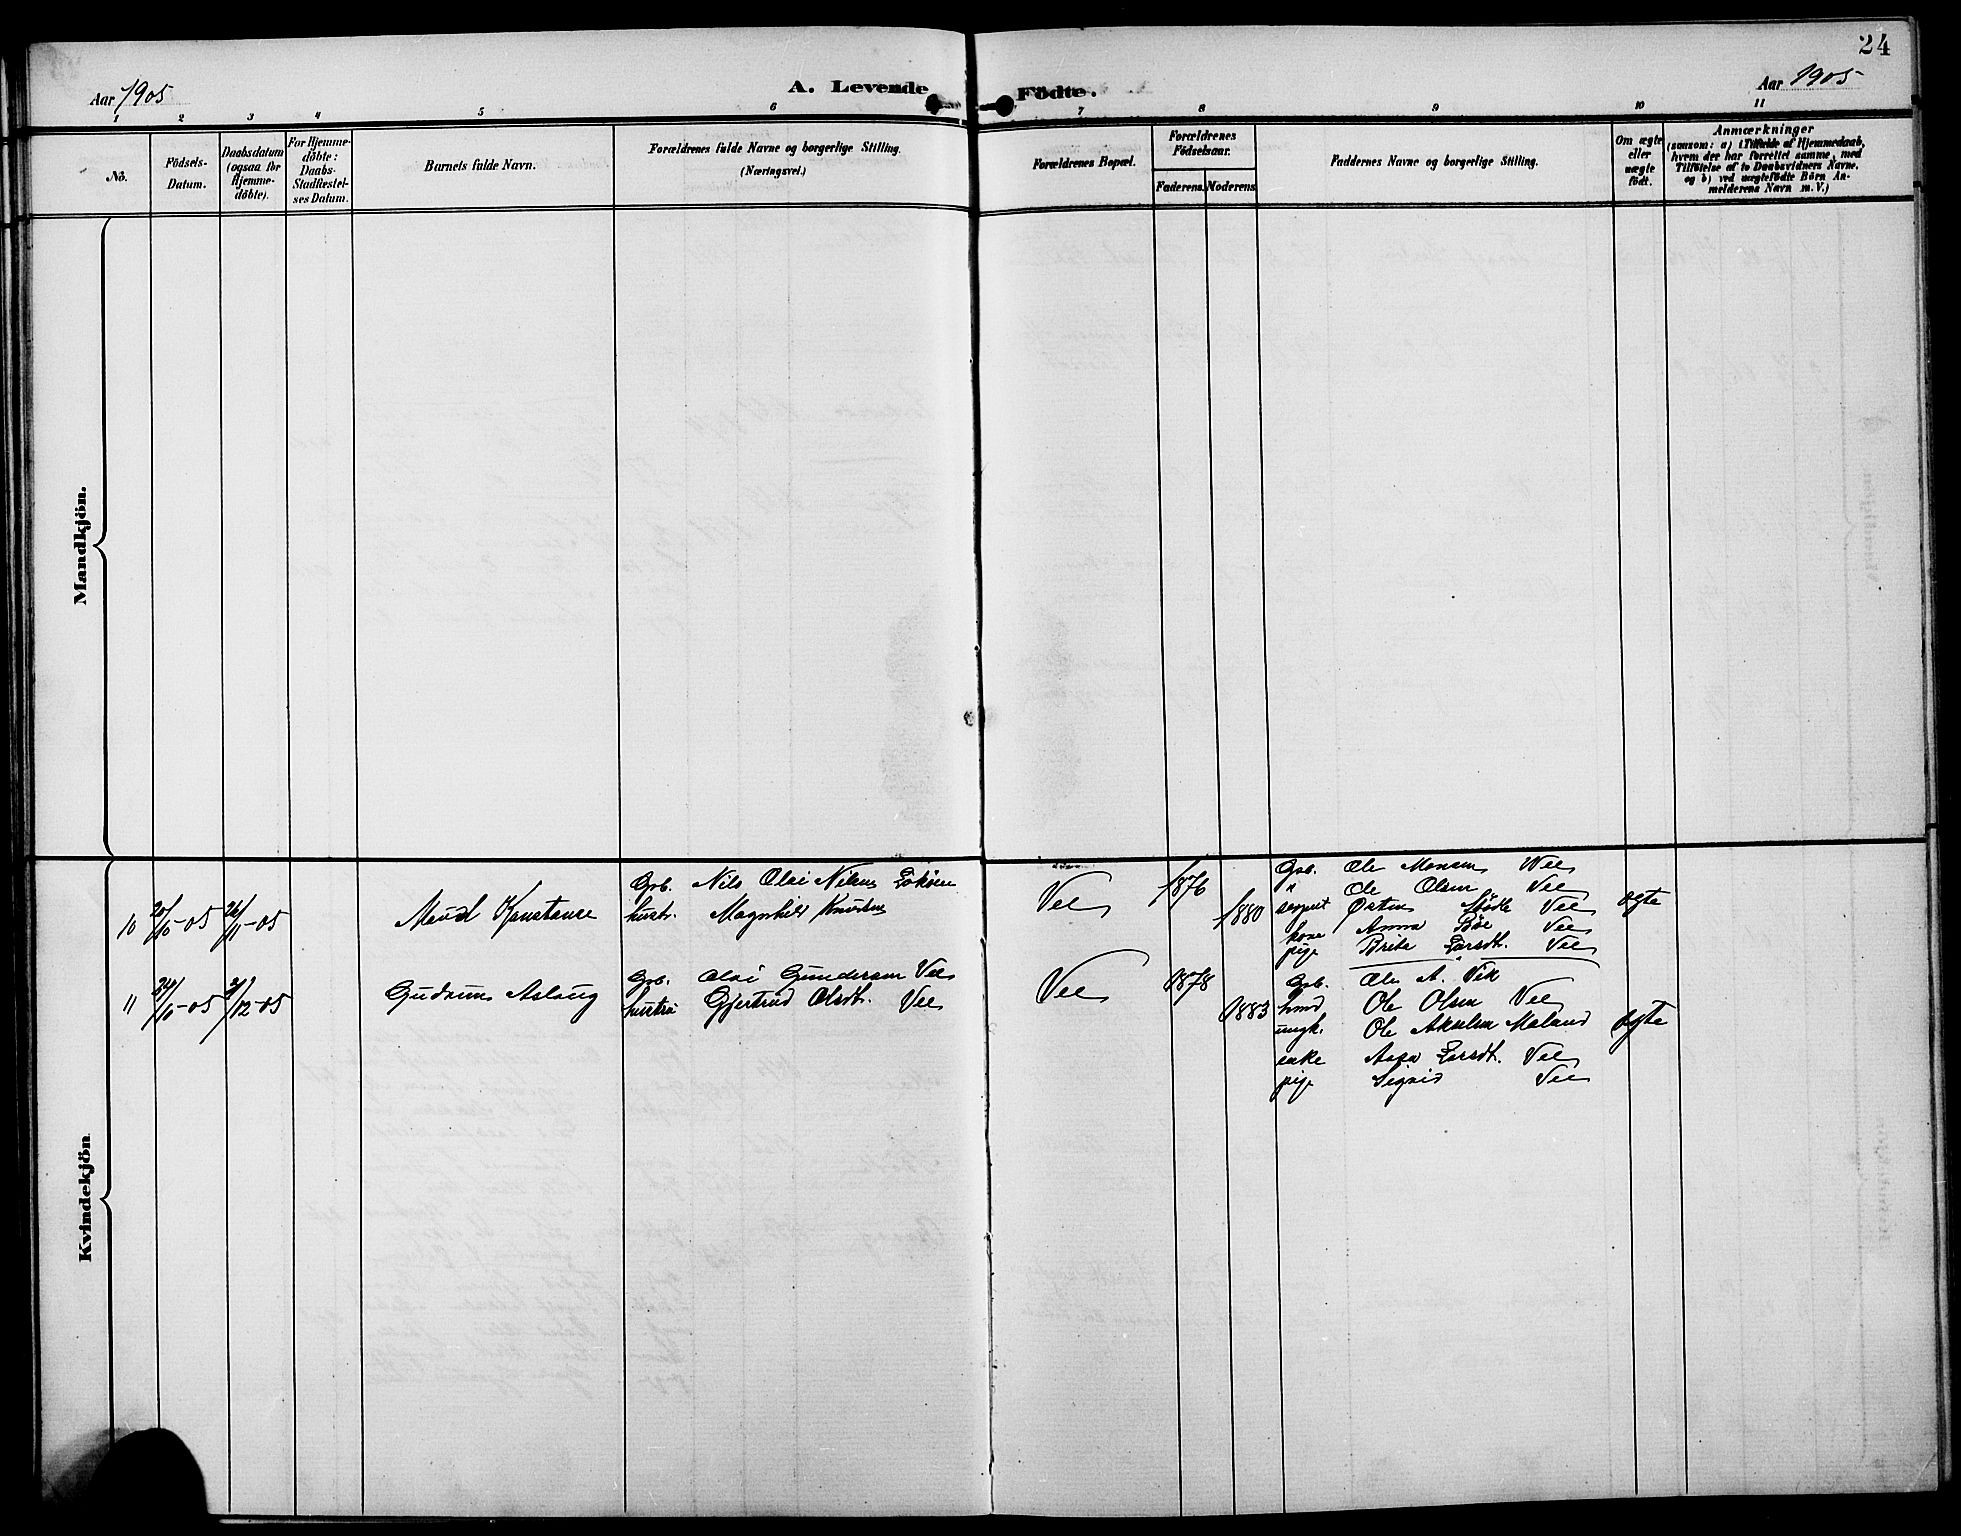 24
Aar 1905
A. Levende Födte.
Aar 1905
1 2 3 4 5 6 7 8 9 10 11
No.
Födsels-Datum.
Daabsdatum (ogsaa for Hjemme-döbte).
For Hjemme-döbte: Daabs-Stadfæstel-ses Datum.
Barnets fulde Navn.
Forældrenes fulde Navne og borgerlige Stilling.
(Næringsvei.)
Forældrenes Bopæl.
Forældrenes Födselsaar.
Faderens. Moderens.
Faddernes Navne og borgerlige Stilling.
Om ægte eller uægte födt.
Anmærkninger
(saasom: a) i Tilfælde af Hjemmedaab,
hvem der har forrettet samme, med
Tilföielse af to Daabsvidners Navne,
og b) ved uægtefödte Börn An-
melderens Navn m. V.)
Mandkjön.
Kvindekjön
10 20/10-05 26/11-05
Konstanse
Grb. Nils Olai Nilsen
hustr. Magnhild Knudsen
Vee
1876
1880
Grb. Ole Monsen Vee
" Ole Olsen Vee
Østen Vee
kone Anna Böe Vee
pige Brita Larsdt. Vee
ægte
11 24/10-05 3/12-05
Gudrun Aslaug
Grb. Olai Gundersen Vee
hustru Gjertrud Olsdt. Vee
Vee
1878
1883
Grb. Ole A. Vik
Ole Olsen Vee
ungk. Ole Akselsen Maland
enke Aasa Larsdt. Vee
pige Sigrid Vee
ægte